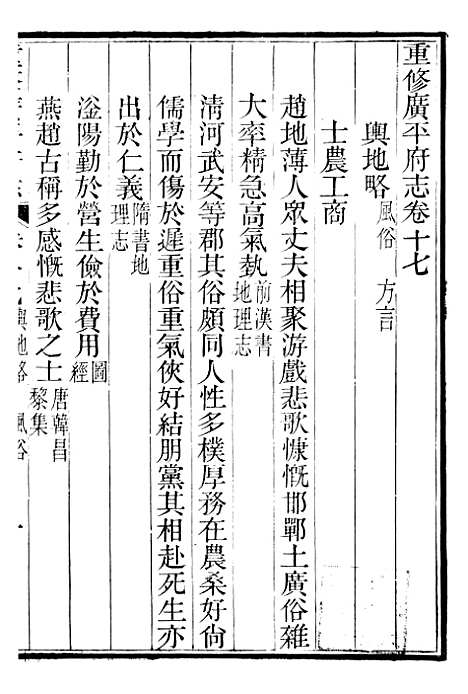 重修廣平府志卷十七
輿地略風俗 方言
士農工商
趙地薄人眾丈夫相聚游戲悲歌慷慨邯鄲土廣俗雜
大率精急高氣埶前漢書地理志
淸河武安等郡其俗頗同人性多樸厚務在農桑好尙
儒學而傷於遲重俗重氣俠好結朋黨其相赴死生亦
出於仁義隋書地理志
滏陽勤於營生儉於費用圖經
燕趙古稱多感慨悲歌之士唐韓昌黎集
輿地略 風俗 一